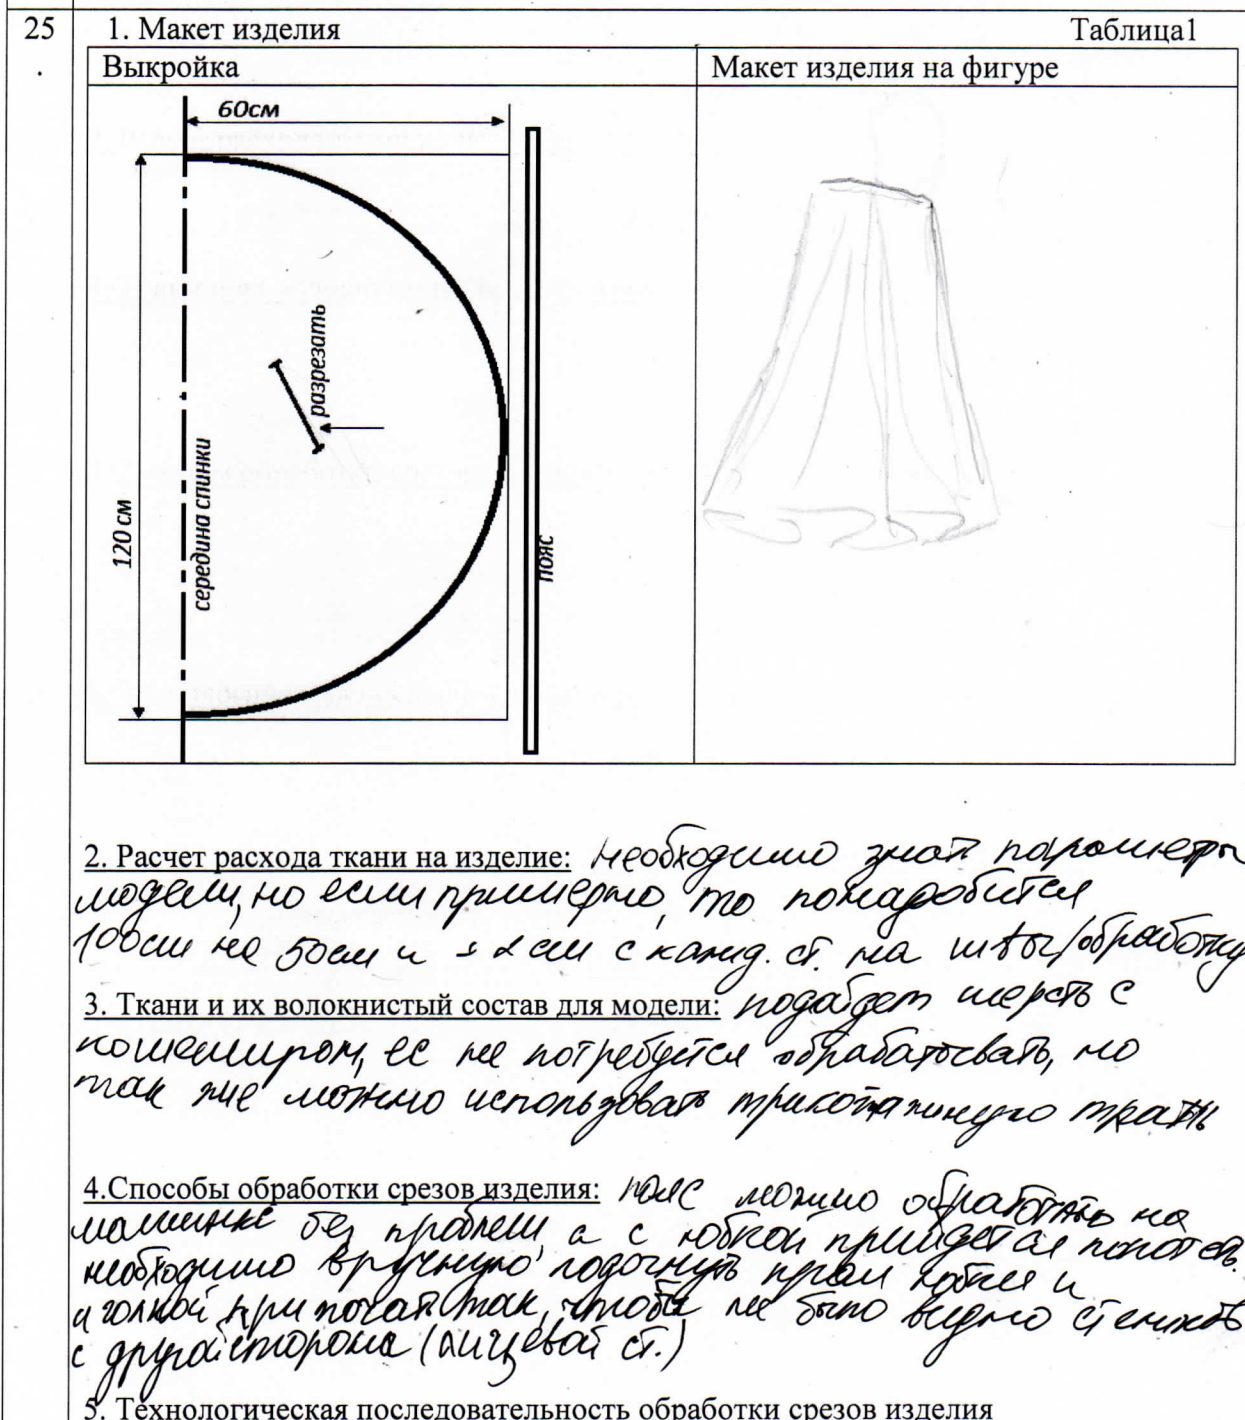 25
1. Макет изделия Таблица1
Выкройка Макет изделия на фигуре
60см
разрезать
120 см
середина спинки
пояс
2. Расчет расхода ткани на изделие: необходимо знать параметры
модели, но если примерно, то понадобится
100см на 50см и ± 2 см с кажд. ст. на швы/обработку
3. Ткани и их волокнистый состав для модели: подойдет шерсть с
кошемиром, ее не потребуется обрабатывать, но
так же можно использовать трикотажную
4.Способы обработки срезов изделия: пояс можно обработать на
машинке без проблем, а с юбкой прийдется
необходимо вручную подогнуть края юбки и
иголкой так, чтобы не было видно
с другой стороны (лицевой ст.)
5. Технологическая последовательность обработки срезов изделия